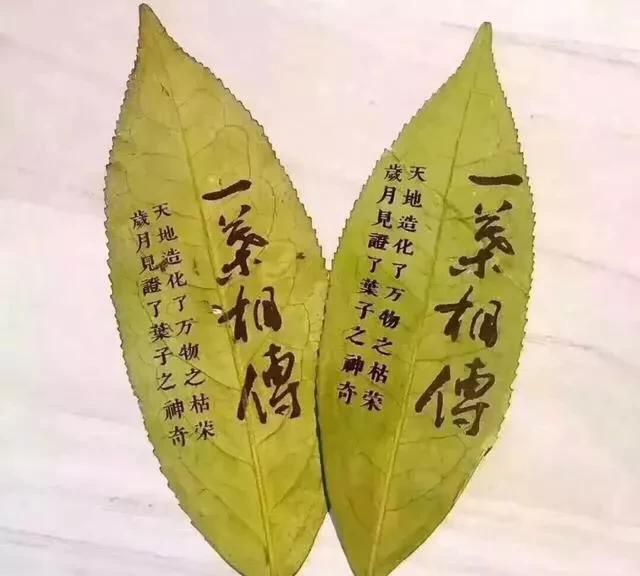 一葉相傳
天地造化了万物之枯荣
歲月見證了葉子之神奇
一葉相傳
天地造化了万物之枯荣
歲月見證了葉子之神奇